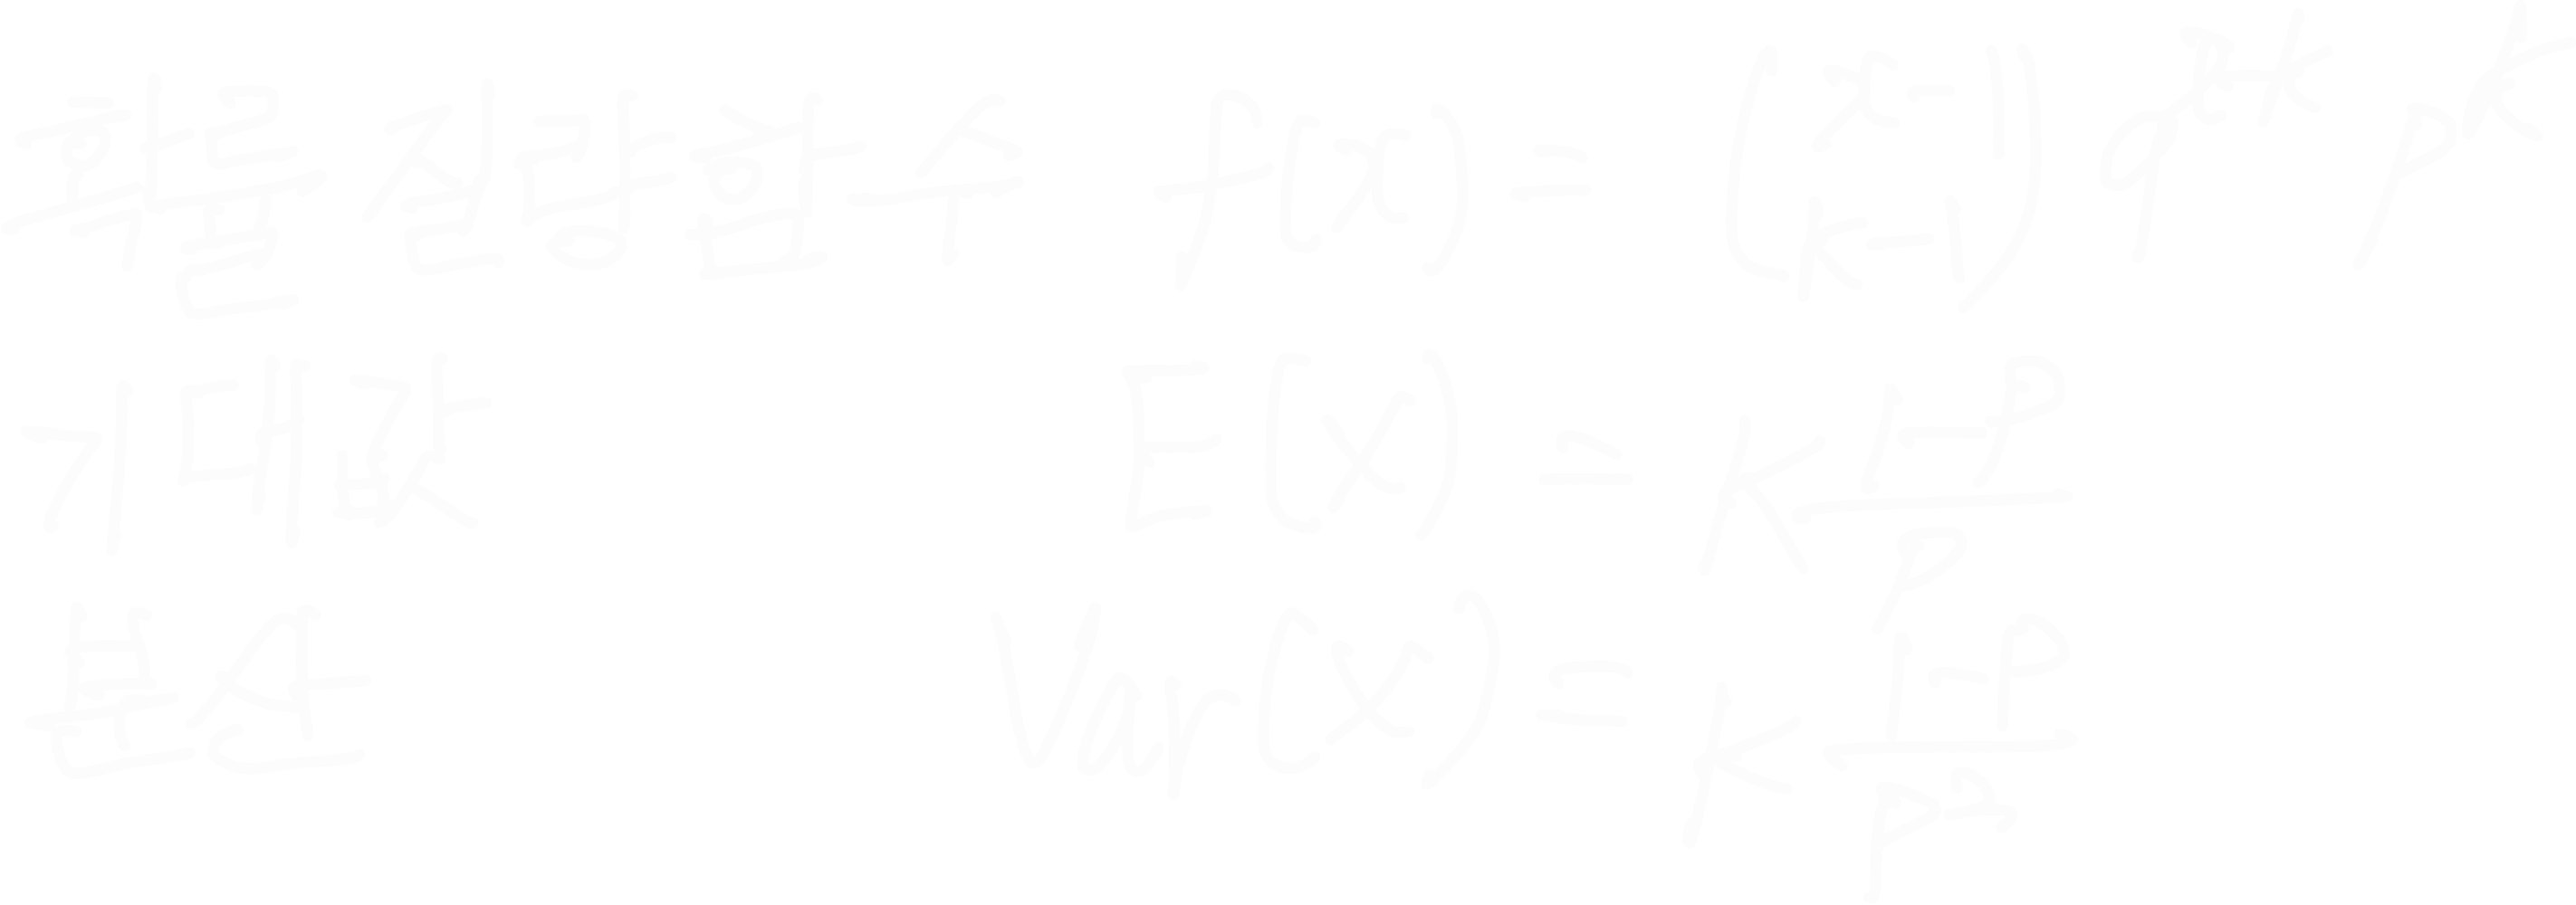 확률질량함수 f(x) = (x-1 k-1) q^x-k p^k
기대값 E(X) = k 1-p/p
분산 Var(X) = k 1-p/p²